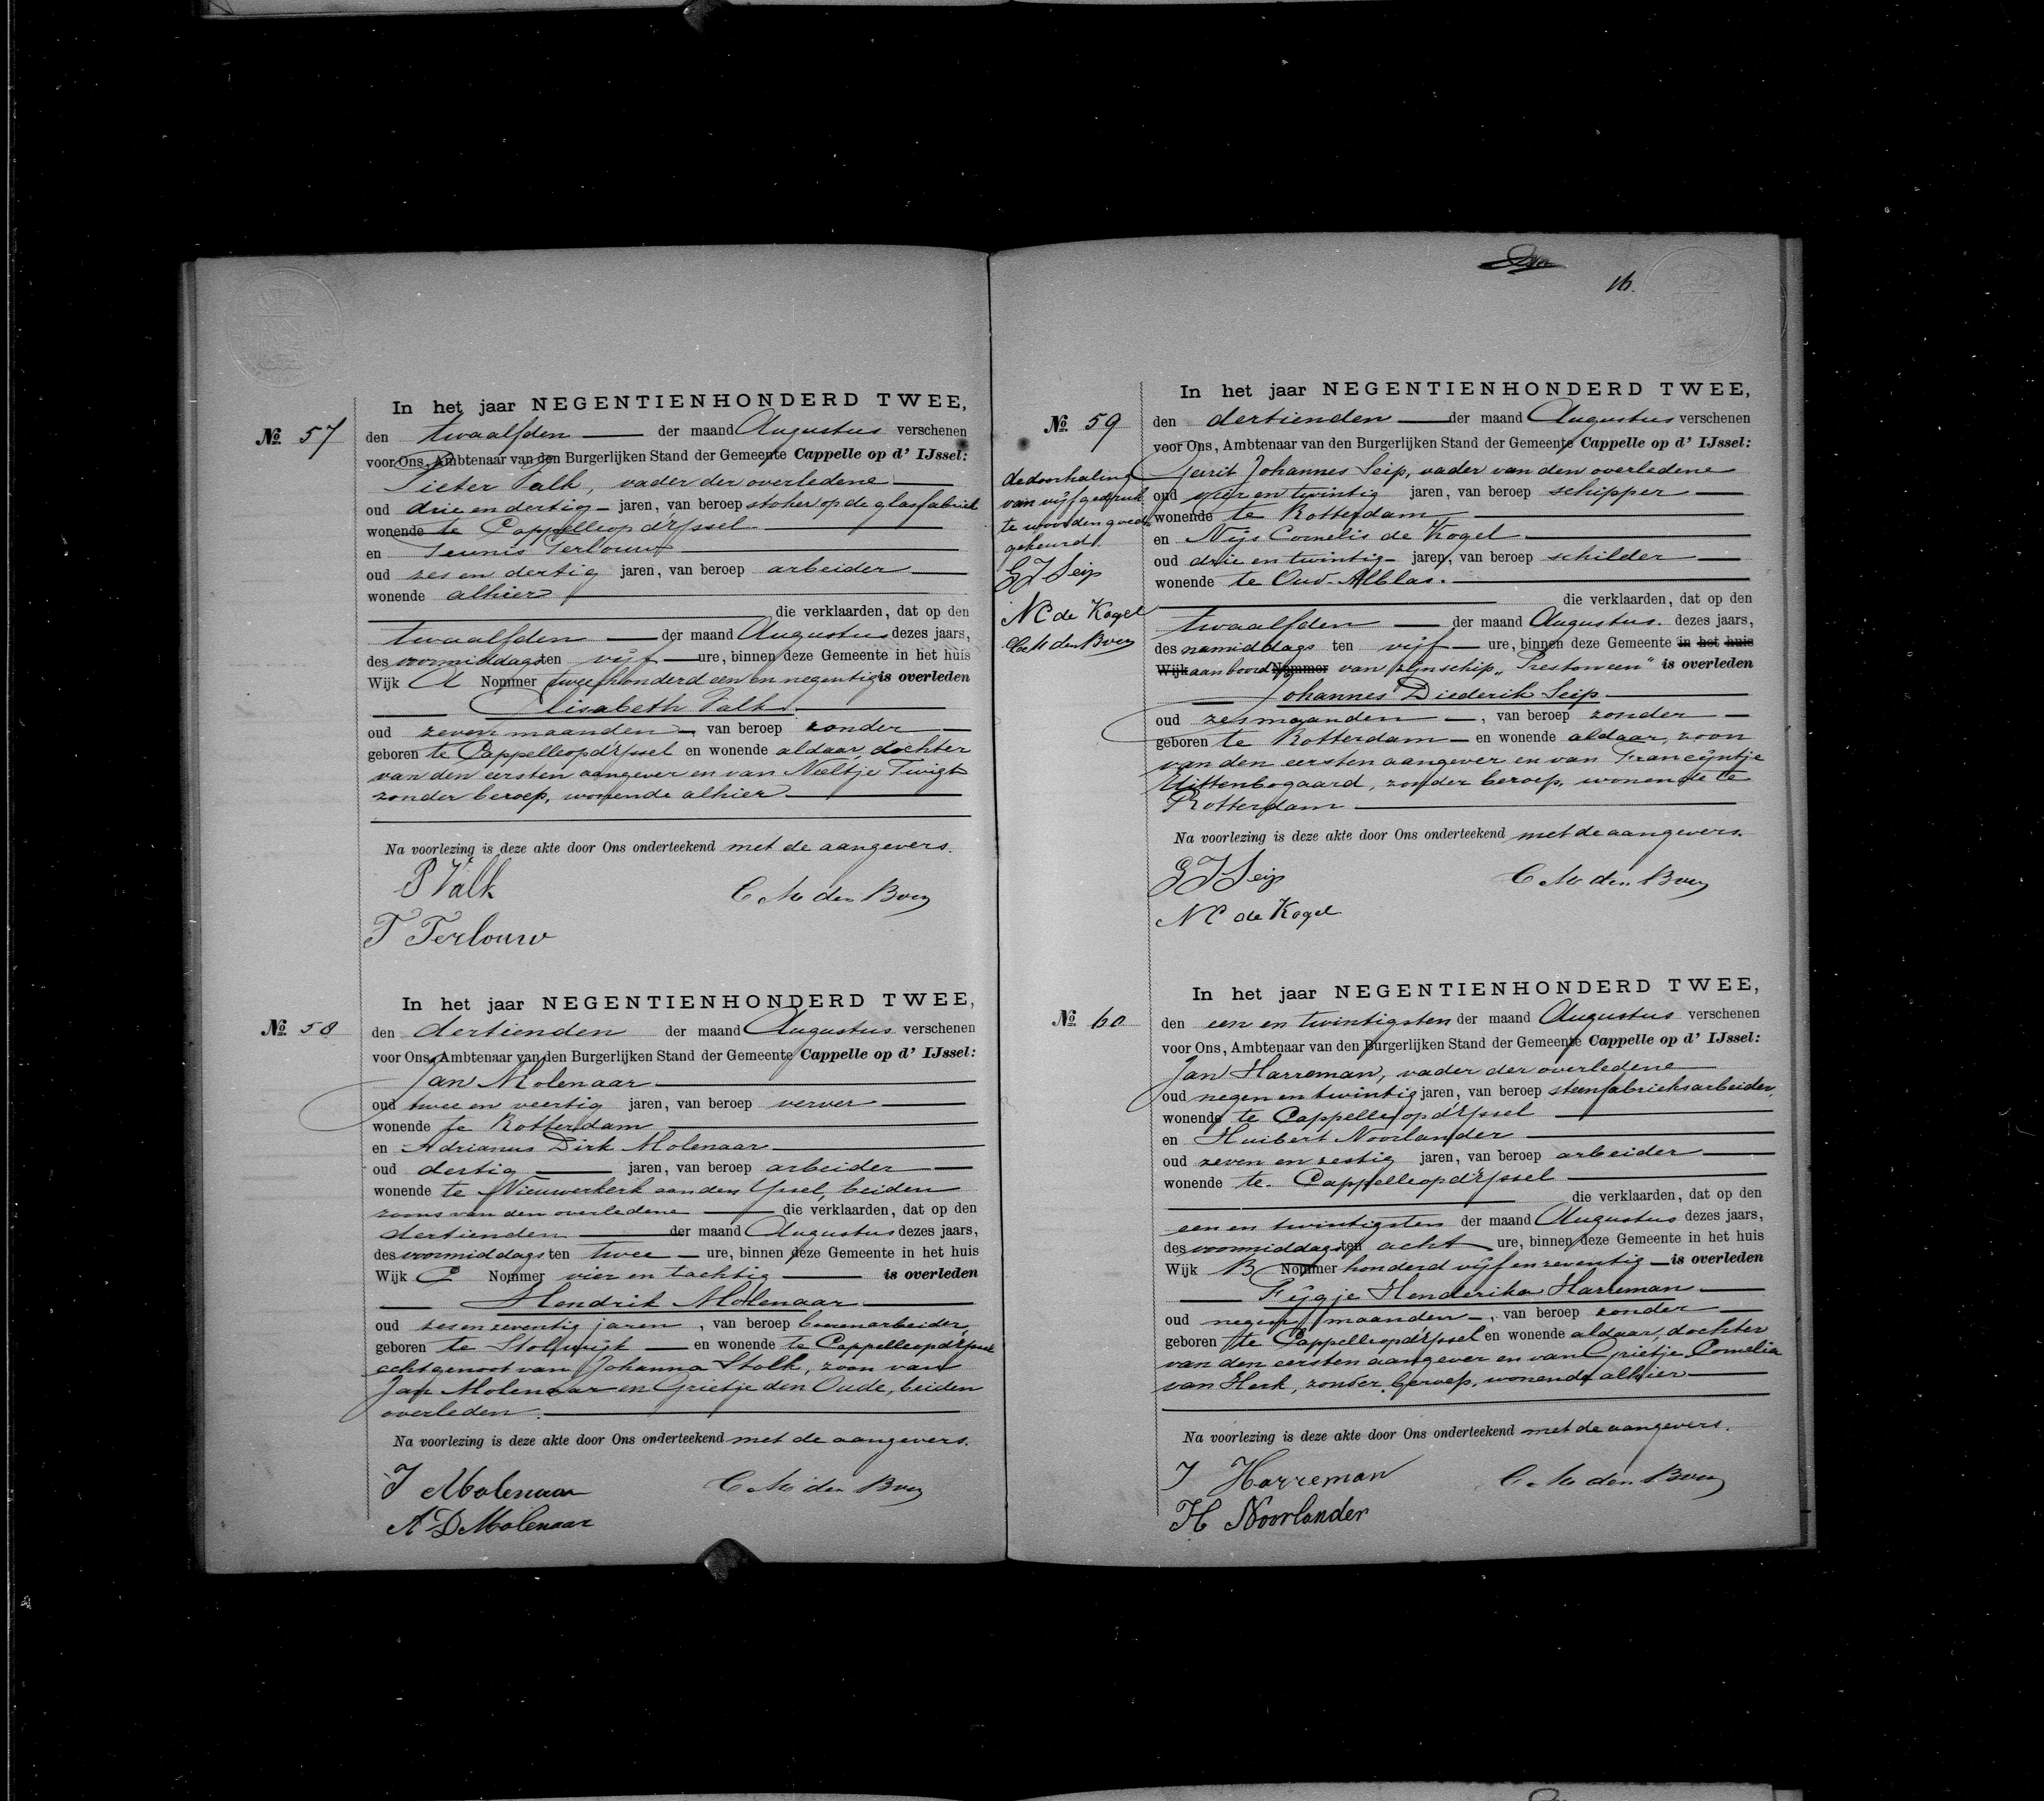 16.
№ 57
In het jaar NEGENTIENHONDERD TWEE,
den twaalfden der maand Augustus verschenen
voor Ons, Ambtenaar van den Burgerlijken Stand der Gemeente Cappelle op d' IJssel:
Pieter Valk, vader der overledene
oud drie en dertig jaren, van beroep stoker op de glasfabriek
wonende te Cappelle op d'IJssel
en Teunis Terlouw
oud zes en dertig jaren, van beroep arbeider
wonende alhier
die verklaarden, dat op den
twaalfden der maand Augustus dezes jaars,
des voormiddags ten vijf ure, binnen deze Gemeente in het huis
Wijk A Nommer twee honderd een en negentig is overleden
Elisabeth Valk
oud zeven maanden, van beroep zonder
geboren te Cappelle op d'IJssel en wonende aldaar, dochter
van den eersten aangever en van Neeltje Twigt
zonder beroep, wonende alhier
Na voorlezing is deze akte door Ons onderteekend met de aangevers.
P Valk
C M den Boer
T Terlouw
№ 58
In het jaar NEGENTIENHONDERD TWEE,
den dertienden der maand Augustus verschenen
voor Ons, Ambtenaar van den Burgerlijken Stand der Gemeente Cappelle op d' IJssel:
Jan Molenaar
oud twee en veertig jaren, van beroep verver
wonende te Rotterdam
en Adrianus Dirk Molenaar
oud dertig jaren, van beroep arbeider
wonende te Nieuwerkerk aan den IJssel, beiden
zoons van den overledene die verklaarden, dat op den
dertienden der maand Augustus dezes jaars,
des voormiddags ten twee ure, binnen deze Gemeente in het huis
Wijk C Nommer vier en tachtig is overleden
Hendrik Molenaar
oud zes en zeventig jaren, van beroep boerenarbeider,
geboren te Stolwijk en wonende te Cappelle op d'IJssel
echtgenoot van Johanna Stolk, zoon van
Jan Molenaar en Grietje den Oude, beiden
overleden.
Na voorlezing is deze akte door Ons onderteekend met de aangevers.
J Molenaar
C M den Boer
A D Molenaar
№ 59
In het jaar NEGENTIENHONDERD TWEE,
den dertienden der maand Augustus verschenen
voor Ons, Ambtenaar van den Burgerlijken Stand der Gemeente Cappelle op d' IJssel:
Gerrit Johannes Seip, vader van den overledene
oud vier en twintig jaren, van beroep schipper
wonende te Rotterdam
en Nijs Cornelis de Kogel
oud drie en twintig jaren, van beroep schilder
wonende te Oud-Alblas.
die verklaarden, dat op den
twaalfden der maand Augustus dezes jaars,
des namiddags ten vijf ure, binnen deze Gemeente in het huis
Wijk aan boord Nommer van zijn schip „Prestoneen" is overleden
Johannes Diederik Seip
oud zes maanden, van beroep zonder
geboren te Rotterdam en wonende aldaar, zoon
van den eersten aangever en van Francijntje
Uittenbogaard, zonder beroep, wonende te
Rotterdam
Na voorlezing is deze akte door Ons onderteekend met de aangevers.
G J Seip
C M den Boer
N C de Kogel
de doorhaling
van vijf gedruk
te woorden goed
gekeurd.
G J Seip
N C de Kogel
C M den Boer
№ 60
In het jaar NEGENTIENHONDERD TWEE,
den een en twintigsten der maand Augustus verschenen
voor Ons, Ambtenaar van den Burgerlijken Stand der Gemeente Cappelle op d' IJssel:
Jan Harreman, vader der overledene
oud negen en twintig jaren, van beroep steenfabrieksarbeider,
wonende te Cappelle op d'IJssel
en Huibert Noorlander
oud zeven en zestig jaren, van beroep arbeider
wonende te Cappelle op d'IJssel
die verklaarden, dat op den
een en twintigsten der maand Augustus dezes jaars,
des voormiddags ten acht ure, binnen deze Gemeente in het huis
Wijk B Nommer honderd vijf en zeventig is overleden
Fijgje Henderika Harreman
oud negen maanden, van beroep zonder
geboren te Cappelle op d'IJssel en wonende aldaar, dochter
van den eersten aangever en van Grietje Cornelia
van Herk, zonder beroep, wonende alhier
Na voorlezing is deze akte door Ons onderteekend met de aangevers.
J Harreman
C M den Boer
H Noorlander